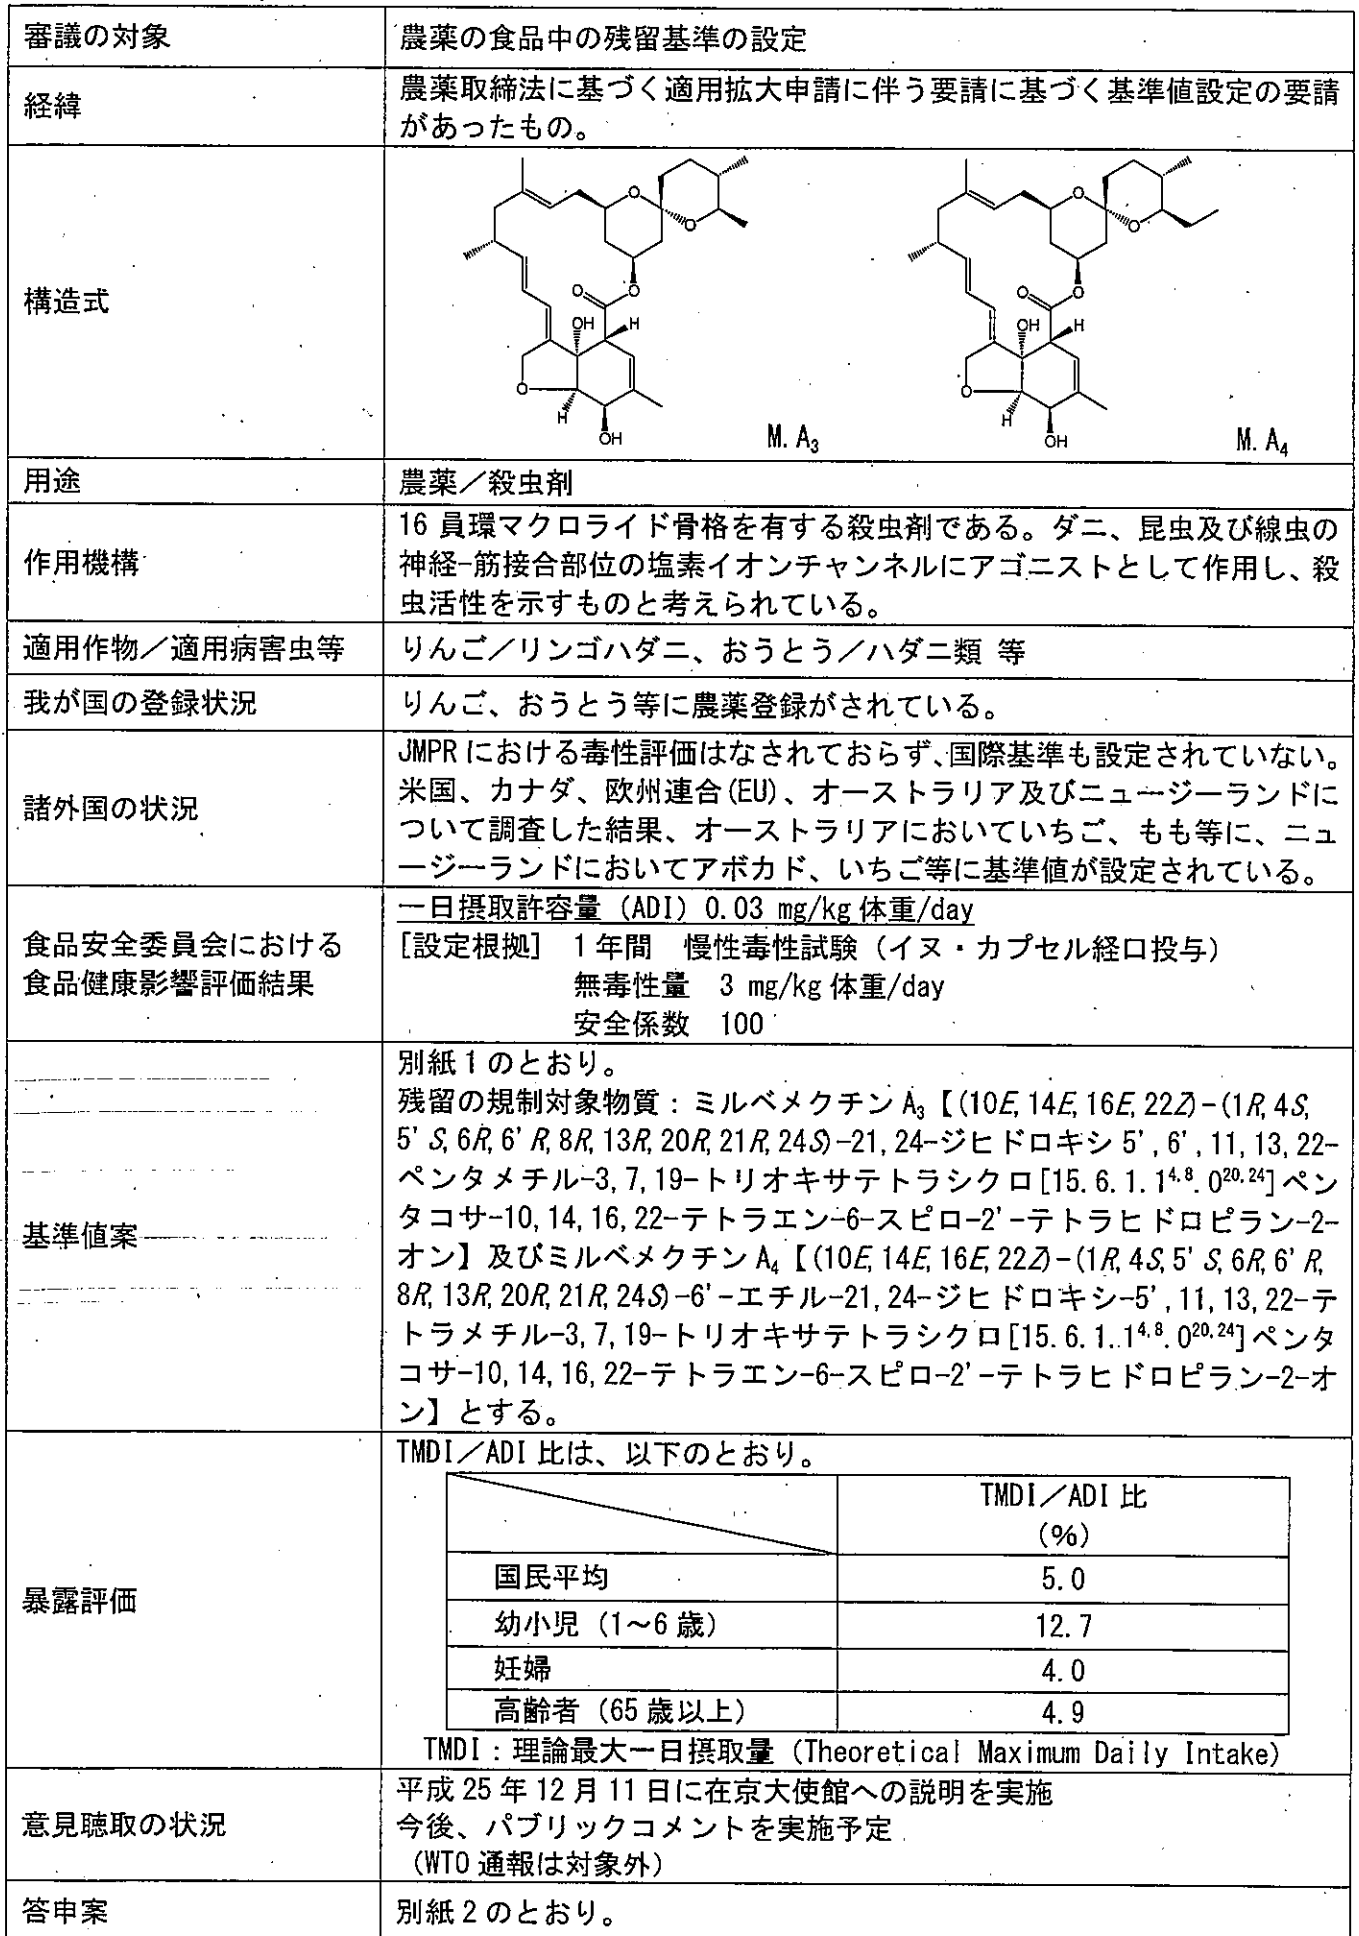 審議の対象
農薬の食品中の残留基準の設定
経緯
農薬取締法に基づく適用拡大申請に伴う要請に基づく基準値設定の要請
があったもの。
構造式
O
O
O
O
OH
H
O
H
OH
M. A3
O
O
O
O
OH
H
O
H
OH
M. A4
用途
農薬／殺虫剤
作用機構
16 員環マクロライド骨格を有する殺虫剤である。ダニ、昆虫及び線虫の
神経-筋接合部位の塩素イオンチャンネルにアゴニストとして作用し、殺
虫活性を示すものと考えられている。
適用作物／適用病害虫等
りんご／リンゴハダニ、おうとう／ハダニ類 等
我が国の登録状況
りんご、おうとう等に農薬登録がされている。
諸外国の状況
JMPR における毒性評価はなされておらず、国際基準も設定されていない。
米国、カナダ、欧州連合(EU)、オーストラリア及びニュージーランドに
ついて調査した結果、オーストラリアにおいていちご、もも等に、ニュ
ージーランドにおいてアボカド、いちご等に基準値が設定されている。
食品安全委員会における
食品健康影響評価結果
一日摂取許容量（ADI）0.03 mg/kg 体重/day
［設定根拠］ 1 年間 慢性毒性試験（イヌ・カプセル経口投与）
無毒性量 3 mg/kg 体重/day
安全係数 100
基準値案
別紙 1 のとおり。
残留の規制対象物質：ミルベメクチン A3【(10E, 14E, 16E, 22Z)-(1R, 4S,
5' S, 6R, 6' R, 8R, 13R, 20R, 21R, 24S)-21, 24-ジヒドロキシ 5', 6', 11, 13, 22-
ペンタメチル-3, 7, 19-トリオキサテトラシクロ[15. 6. 1. 1^4,8. 0^20,24]ペン
タコサ-10, 14, 16, 22-テトラエン-6-スピロ-2'-テトラヒドロピラン-2-
オン】及びミルベメクチン A4【(10E, 14E, 16E, 22Z)-(1R, 4S, 5' S, 6R, 6' R,
8R, 13R, 20R, 21R, 24S)-6'-エチル-21, 24-ジヒドロキシ-5', 11, 13, 22-テ
トラメチル-3, 7, 19-トリオキサテトラシクロ[15. 6. 1. 1^4,8. 0^20,24]ペンタ
コサ-10, 14, 16, 22-テトラエン-6-スピロ-2'-テトラヒドロピラン-2-オ
ン】とする。
暴露評価
TMDI／ADI 比は、以下のとおり。
TMDI／ADI 比
（%）
国民平均 5.0
幼小児（1～6 歳） 12.7
妊婦 4.0
高齢者（65 歳以上） 4.9
TMDI：理論最大一日摂取量（Theoretical Maximum Daily Intake）
意見聴取の状況
平成 25 年 12 月 11 日に在京大使館への説明を実施
今後、パブリックコメントを実施予定
（WTO 通報は対象外）
答申案
別紙 2 のとおり。